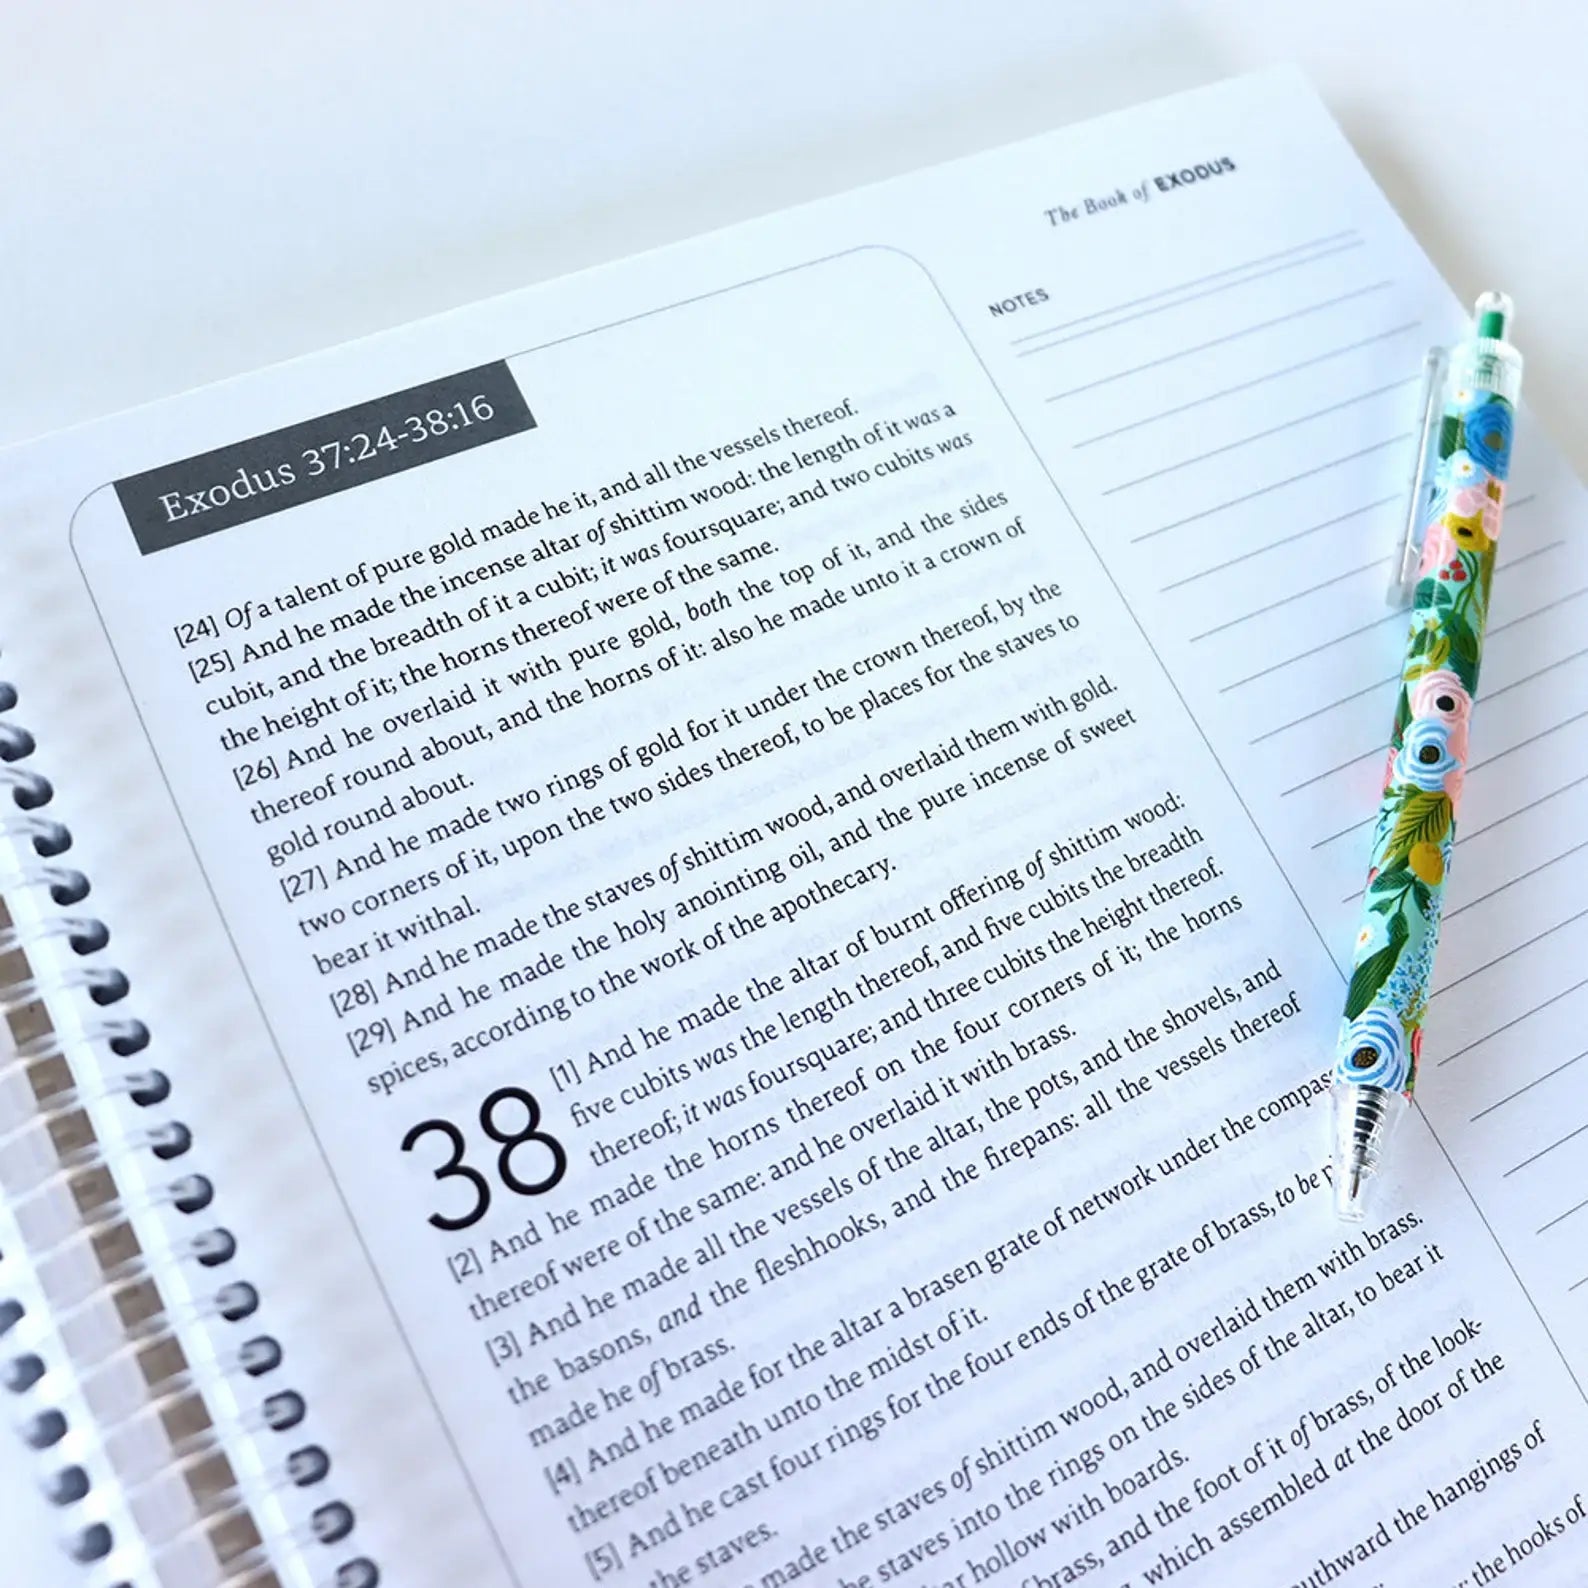 The Book of EXODUS
NOTES
Exodus 37:24-38:16
[24] Of a talent of pure gold made he it, and all the vessels thereof.
[25] And he made the incense altar of shittim wood: the length of it was a
cubit, and the breadth of it a cubit; it was foursquare; and two cubits was
the height of it; the horns thereof were of the same.
[26] And he overlaid it with pure gold, both the top of it, and the sides
thereof round about, and the horns of it: also he made unto it a crown of
gold round about.
[27] And he made two rings of gold for it under the crown thereof, by the
two corners of it, upon the two sides thereof, to be places for the staves to
bear it withal.
[28] And he made the staves of shittim wood, and overlaid them with gold.
[29] And he made the holy anointing oil, and the pure incense of sweet
spices, according to the work of the apothecary.
38
[1] And he made the altar of burnt offering of shittim wood:
five cubits was the length thereof, and five cubits the breadth
thereof; it was foursquare; and three cubits the height thereof.
[2] And he made the horns thereof on the four corners of it; the horns
thereof were of the same: and he overlaid it with brass.
[3] And he made all the vessels of the altar, the pots, and the shovels, and
the basons, and the fleshhooks, and the firepans: all the vessels thereof
made he of brass.
[4] And he made for the altar a brasen grate of network under the compass
thereof beneath unto the midst of it.
[5] And he cast four rings for the four ends of the grate of brass, to be
the staves.
made the staves of shittim wood, and overlaid them with brass.
the staves into the rings on the sides of the altar, to bear it
hollow with boards.
brass, and the foot of it of brass, of the look-
which assembled at the door of the
the hangings of
the hooks of